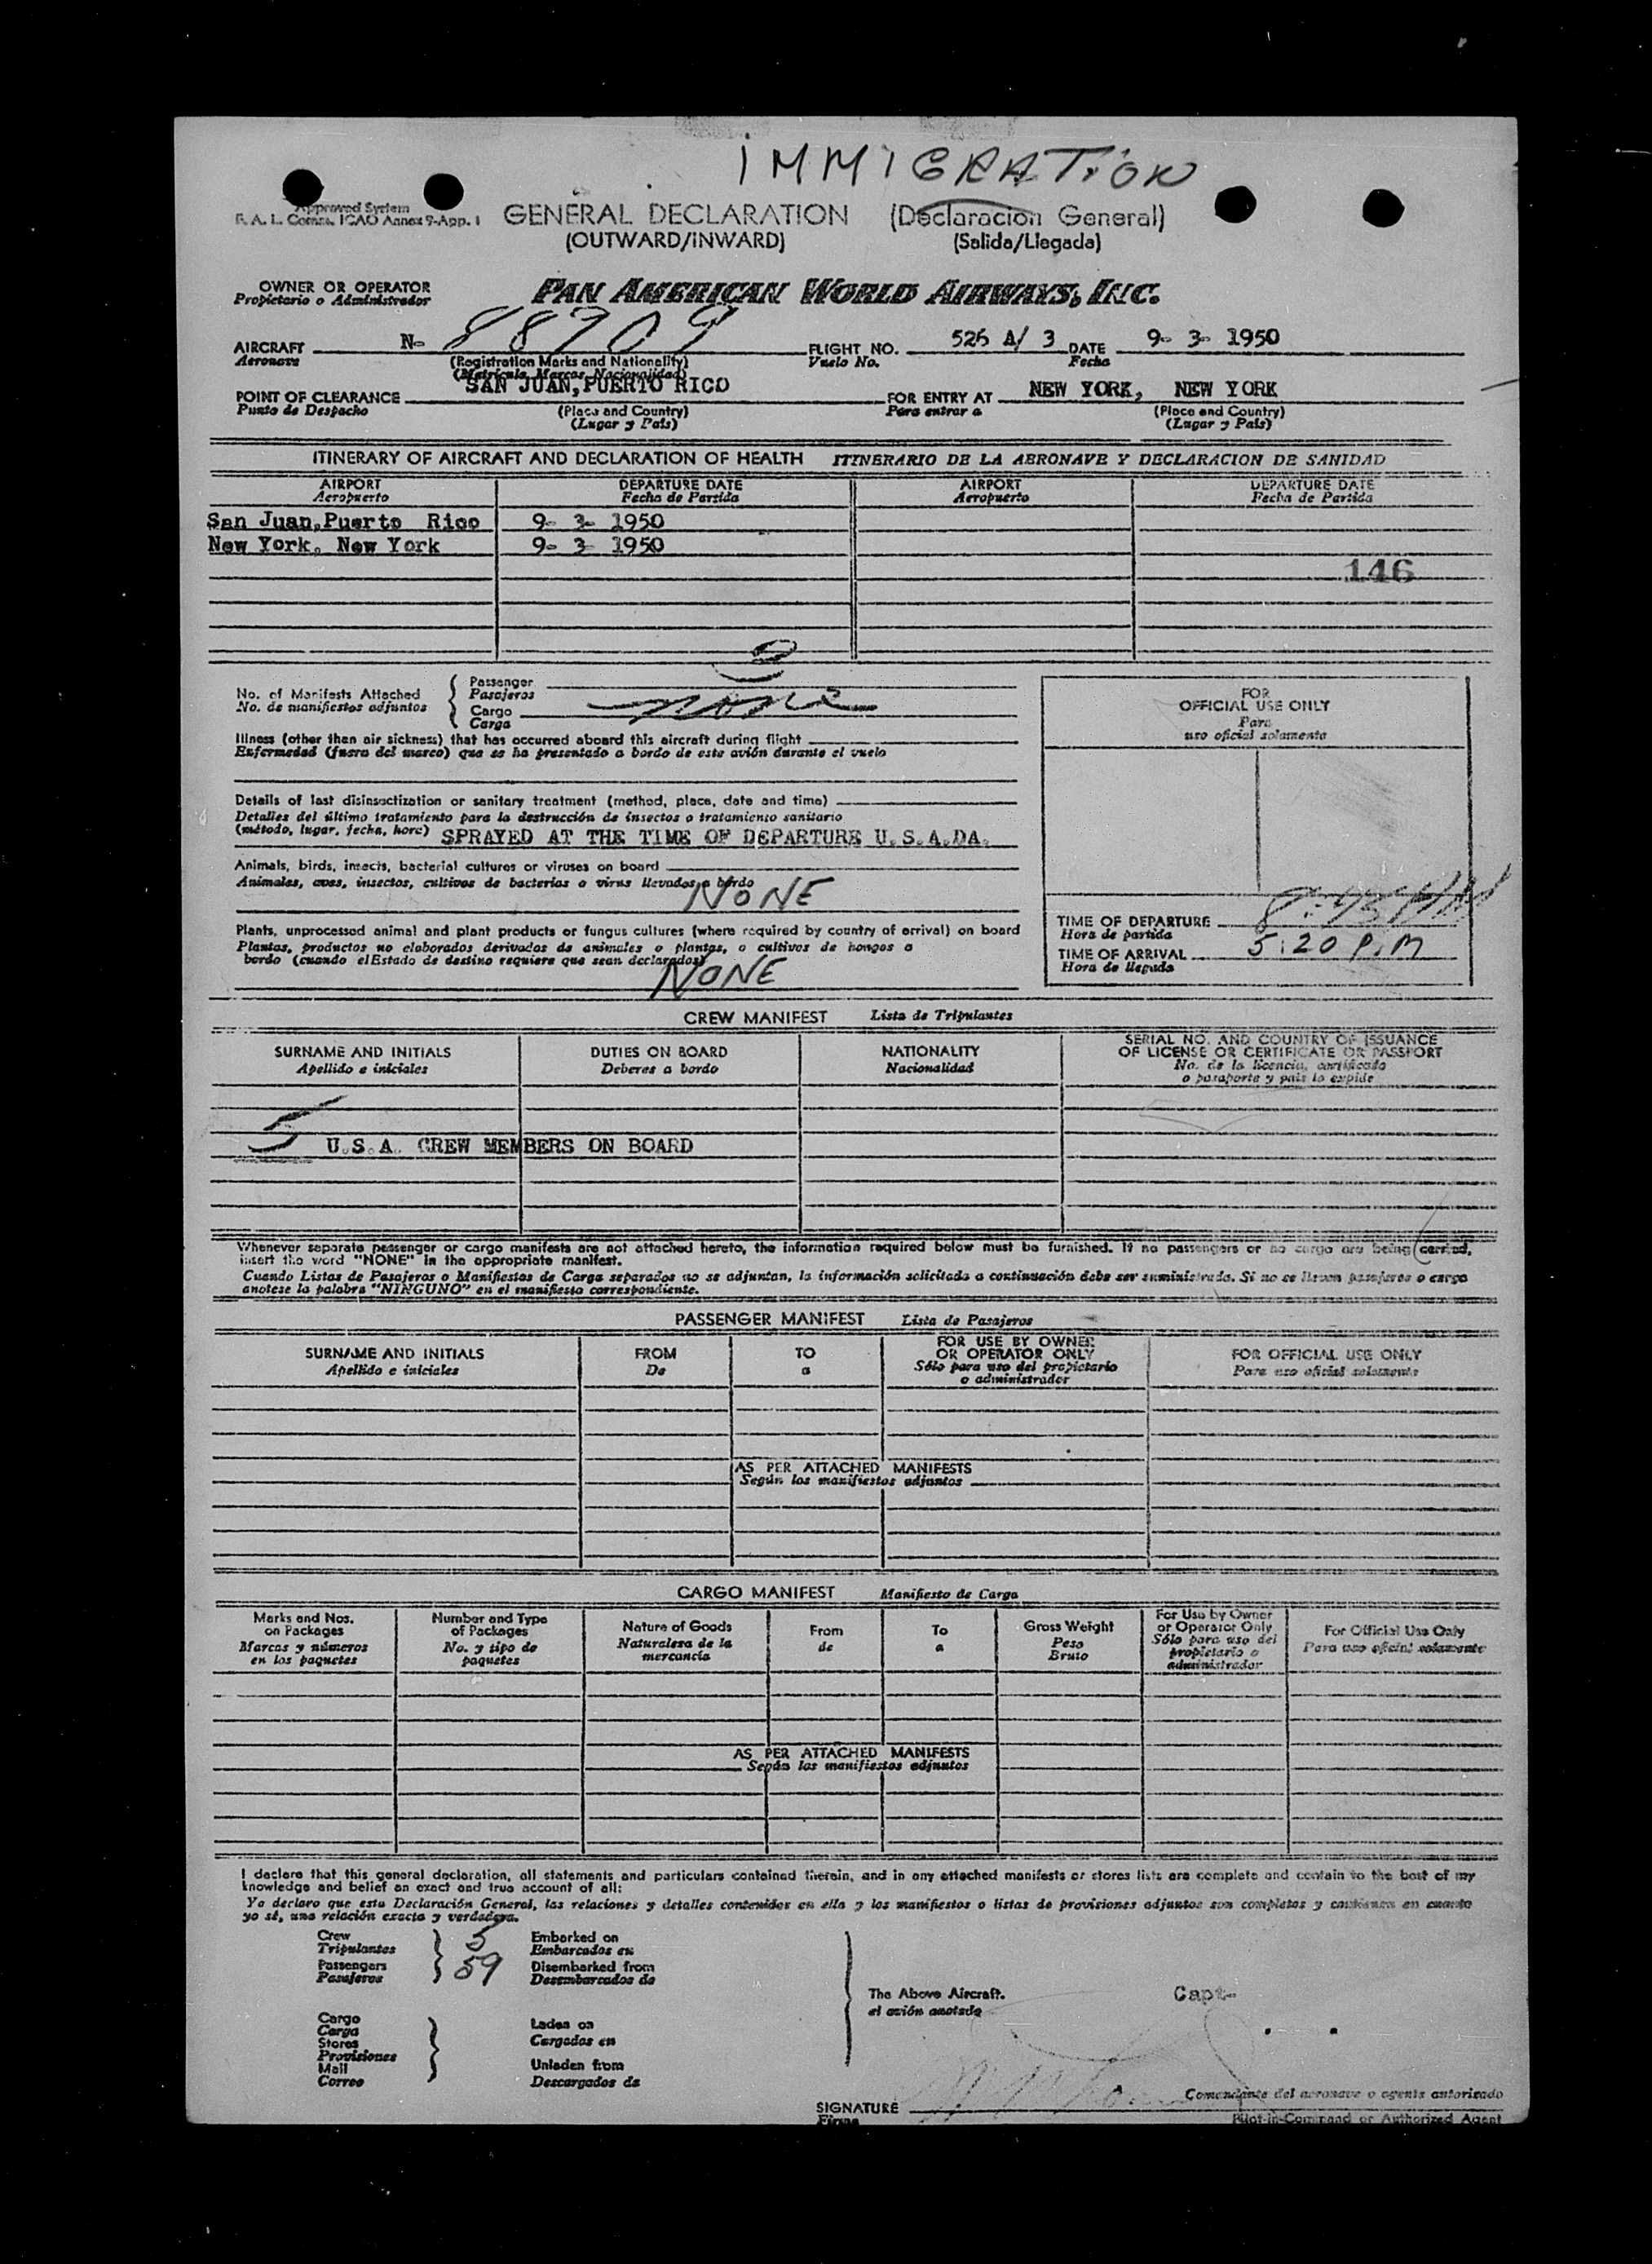 IMMIGRATION
Approved System
F. A. L. Comm. ICAO Annex 9-App. 1
GENERAL DECLARATION (Declaracion General)
(OUTWARD/INWARD) (Salida/Llegada)
OWNER OR OPERATOR
Propietario o Administrador
PAN AMERICAN WORLD AIRWAYS, INC.
AIRCRAFT N- 88909 FLIGHT NO. 526 A/ 3 DATE 9- 3- 1950
Aeronave (Registration Marks and Nationality) Vuelo No. Fecha
(Matricula, Marcas, Nacionalidad)
POINT OF CLEARANCE SAN JUAN, PUERTO RICO FOR ENTRY AT NEW YORK, NEW YORK
Punto de Despacho (Place and Country) Para entrar a (Place and Country)
(Lugar y País) (Lugar y País)
ITINERARY OF AIRCRAFT AND DECLARATION OF HEALTH ITINERARIO DE LA AERONAVE Y DECLARACION DE SANIDAD
AIRPORT DEPARTURE DATE AIRPORT DEPARTURE DATE
Aeropuerto Fecha de Partida Aeropuerto Fecha de Partida
San Juan, Puerto Rico 9- 3- 1950
New York. New York 9- 3- 1950
146
No. of Manifests Attached
No. de manifiestos adjuntos
Passenger
Pasajeros
Cargo none
Carga
FOR
OFFICIAL USE ONLY
Para
uso oficial solamente
Illness (other than air sickness) that has occurred aboard this aircraft during flight
Enfermedad (fuera del mareo) que se ha presentado a bordo de este avión durante el vuelo
Details of last disinsectization or sanitary treatment (method, place, date and time)
Detalles del último tratamiento para la destrucción de insectos o tratamiento sanitario
(método, lugar, fecha, hora) SPRAYED AT THE TIME OF DEPARTURE U.S.A.DA.
Animals, birds, insects, bacterial cultures or viruses on board
Animales, aves, insectos, cultivos de bacterias o virus llevados a bordo
NONE
Plants, unprocessed animal and plant products or fungus cultures (where required by country of arrival) on board
Plantas, productos no elaborados derivados de animales o plantas, o cultivos de hongos a
bordo (cuando el Estado de destino requiere que sean declarados)
NONE
TIME OF DEPARTURE
Hora de partida
TIME OF ARRIVAL 5:20 P.M
Hora de llegada
CREW MANIFEST Lista de Tripulantes
SURNAME AND INITIALS DUTIES ON BOARD NATIONALITY SERIAL NO. AND COUNTRY OF ISSUANCE
OF LICENSE OR CERTIFICATE OR PASSPORT
Apellido e iniciales Deberes a bordo Nacionalidad No. de la licencia, certificado
o pasaporte y país lo expide
5 U.S.A. CREW MEMBERS ON BOARD
Whenever separate passenger or cargo manifests are not attached hereto, the information required below must be furnished. If no passengers or no cargo are being carried,
insert the word "NONE" in the appropriate manifest.
Cuando Listas de Pasajeros o Manifiestos de Carga separados no se adjuntan, la información solicitada a continuación debe ser suministrada. Si no se llevan pasajeros o carga
anotese la palabra "NINGUNO" en el manifiesto correspondiente.
PASSENGER MANIFEST Lista de Pasajeros
SURNAME AND INITIALS FROM TO FOR USE BY OWNER
OR OPERATOR ONLY FOR OFFICIAL USE ONLY
Apellido e iniciales De a Sólo para uso del propietario
o administrador Para uso oficial solamente
AS PER ATTACHED MANIFESTS
Según los manifiestos adjuntos
CARGO MANIFEST Manifiesto de Carga
Marks and Nos.
on Packages
Marcas y números
en los paquetes
Number and Type
of Packages
No. y tipo de
paquetes
Nature of Goods
Naturaleza de la
mercancía
From
de
To
a
Gross Weight
Peso
Bruto
For Use by Owner
or Operator Only
Sólo para uso del
propietario o
administrador
For Official Use Only
Para uso oficial solamente
AS PER ATTACHED MANIFESTS
Según los manifiestos adjuntos
I declare that this general declaration, all statements and particulars contained therein, and in any attached manifests or stores lists are complete and contain to the best of my
knowledge and belief an exact and true account of all:
Yo declaro que esta Declaración General, las relaciones y detalles contenidos en ella y los manifiestos o listas de provisiones adjuntos son completas y contienen en cuanto
yo sé, una relación exacta y verdadera.
Crew 5 Embarked on
Tripulantes Embarcados en
Passengers 59 Disembarked from
Pasajeros Desembarcados de
The Above Aircraft. Capt-
el avión anotado
Cargo
Carga
Stores
Provisiones
Mail
Correo
Laden on
Cargados en
Unladen from
Descargados de
Comandante del aeronave o agente autorizado
SIGNATURE
Firma Pilot-in-Command or Authorized Agent